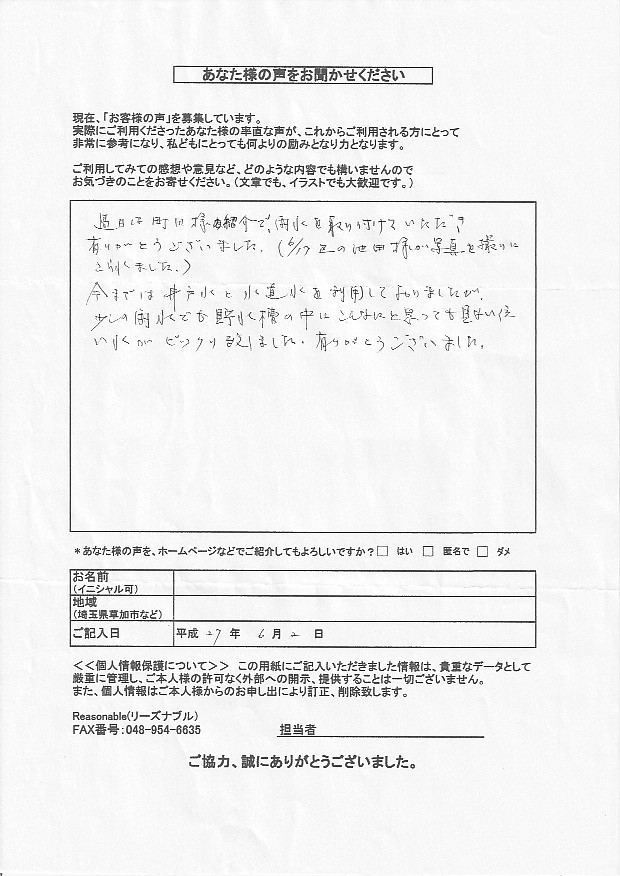 あなた様の声をお聞かせください
現在、「お客様の声」を募集しています。
実際にご利用くださったあなた様の率直な声が、これからご利用される方にとって
非常に参考になり、私どもにとっても何よりの励みとなり力となります。
ご利用してみての感想や意見など、どのような内容でも構いませんので
お気づきのことをお寄せください。（文章でも、イラストでも大歓迎です。）
過日は町田様の紹介で、雨水を取り付けていただき
有りがとうございました。（6/17 の池田様が写真を撮りに
今までは井戸水と水道水を利用しておりましたが、
少しの雨水でも貯水槽の中にこんなにと思っても見ない位
い水がビックリ致しました。有りがとうございました。
＊あなた様の声を、ホームページなどでご紹介してもよろしいですか？□ はい □ 匿名で □ ダメ
お名前
（イニシャル可）
地域
（埼玉県草加市など）
ご記入日 平成 27 年 6 月 2 日
＜＜個人情報保護について＞＞ この用紙にご記入いただきました情報は、貴重なデータとして
厳重に管理し、ご本人様の許可なく外部への開示、提供することは一切ございません。
また、個人情報はご本人様からのお申し出により訂正、削除致します。
Reasonable(リーズナブル)
FAX番号：048-954-6635 担当者
ご協力、誠にありがとうございました。